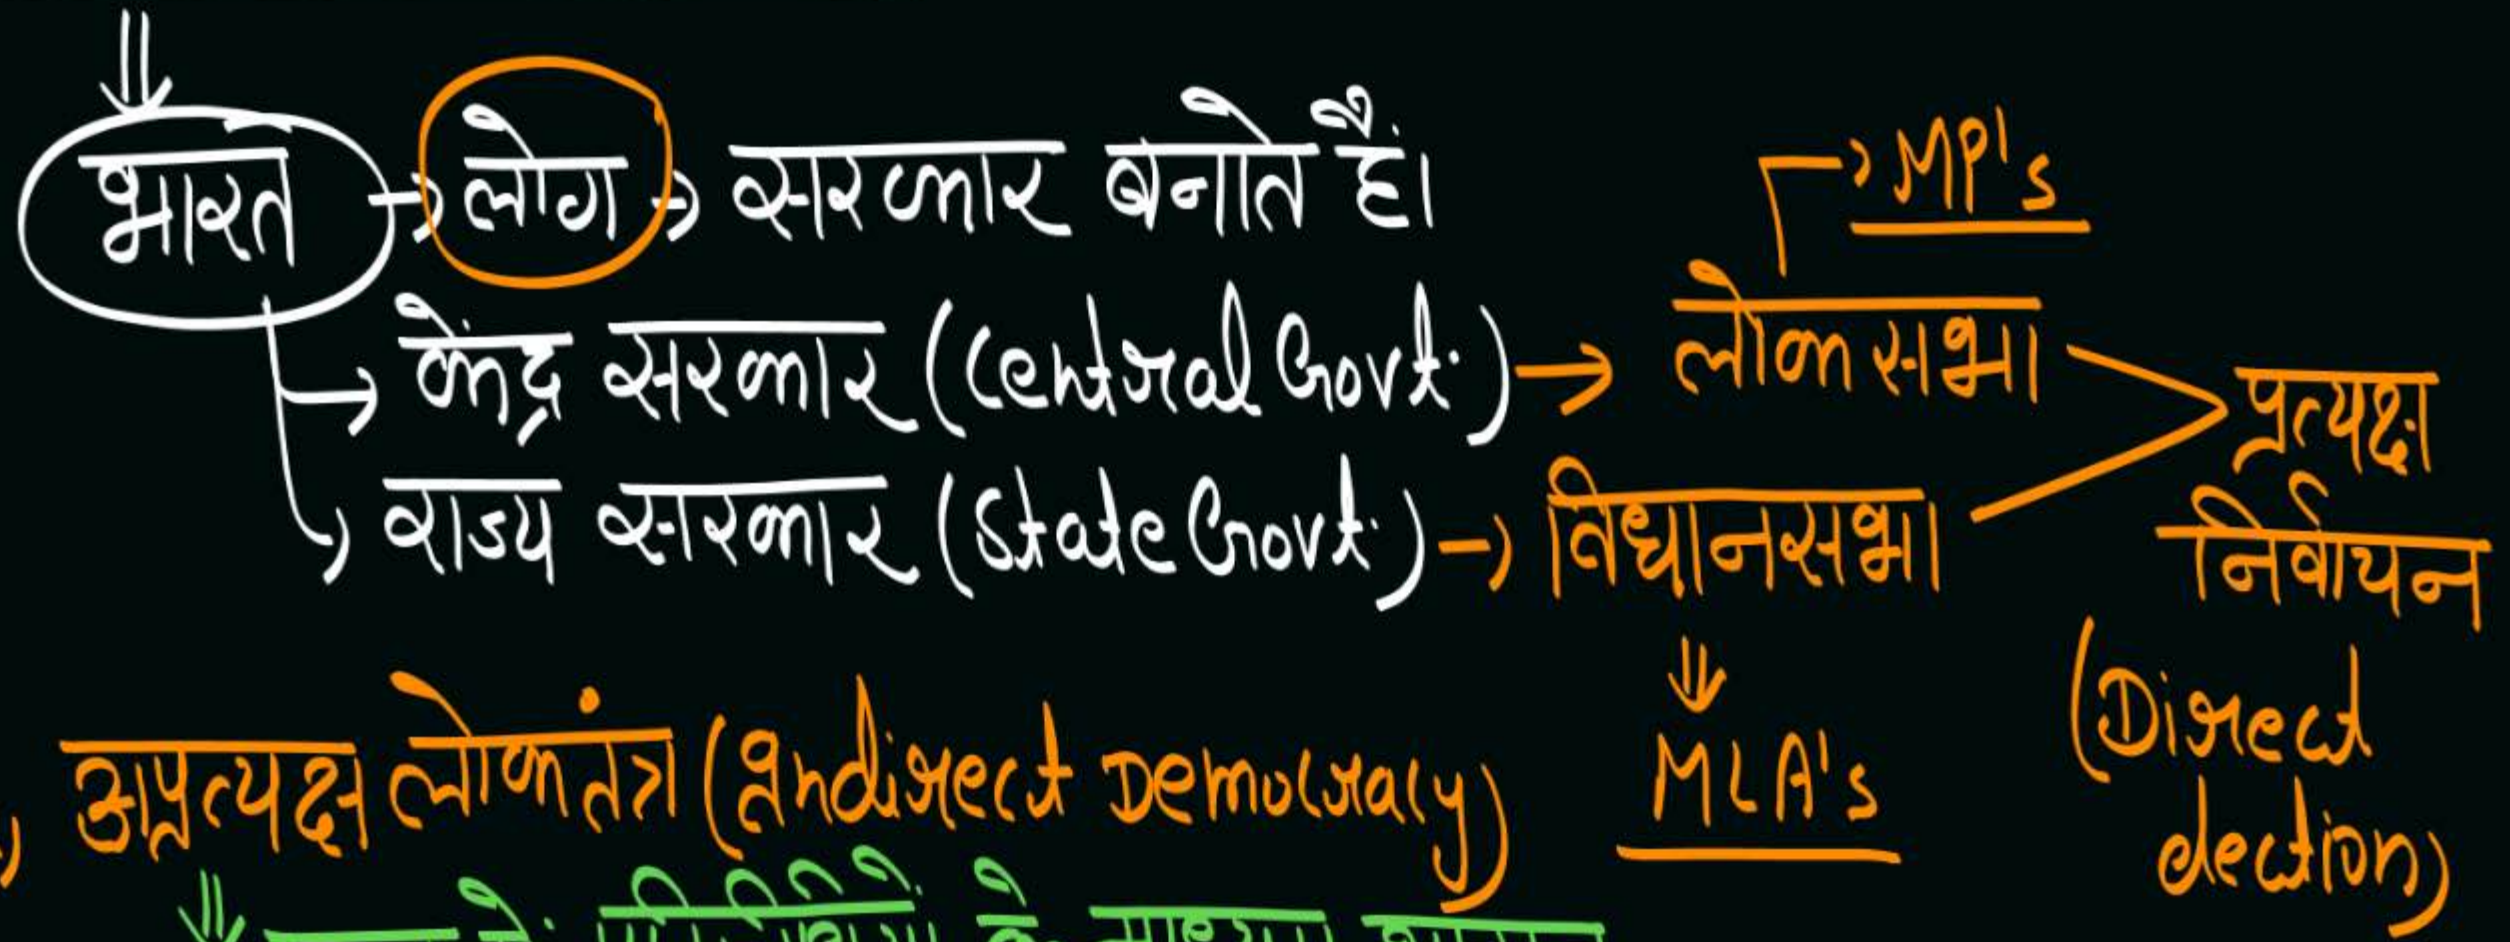 भारत → लोग → सरकार बनाते हैं।
→ MP's
→ केंद्र सरकार (Central Govt.) → लोकसभा
→ राज्य सरकार (State Govt.) → विधानसभा
प्रत्यक्ष
निर्वाचन
(Direct
election)
⇓
MLA's
→ अप्रत्यक्ष लोकतंत्र (Indirect Democracy)
के माध्यम